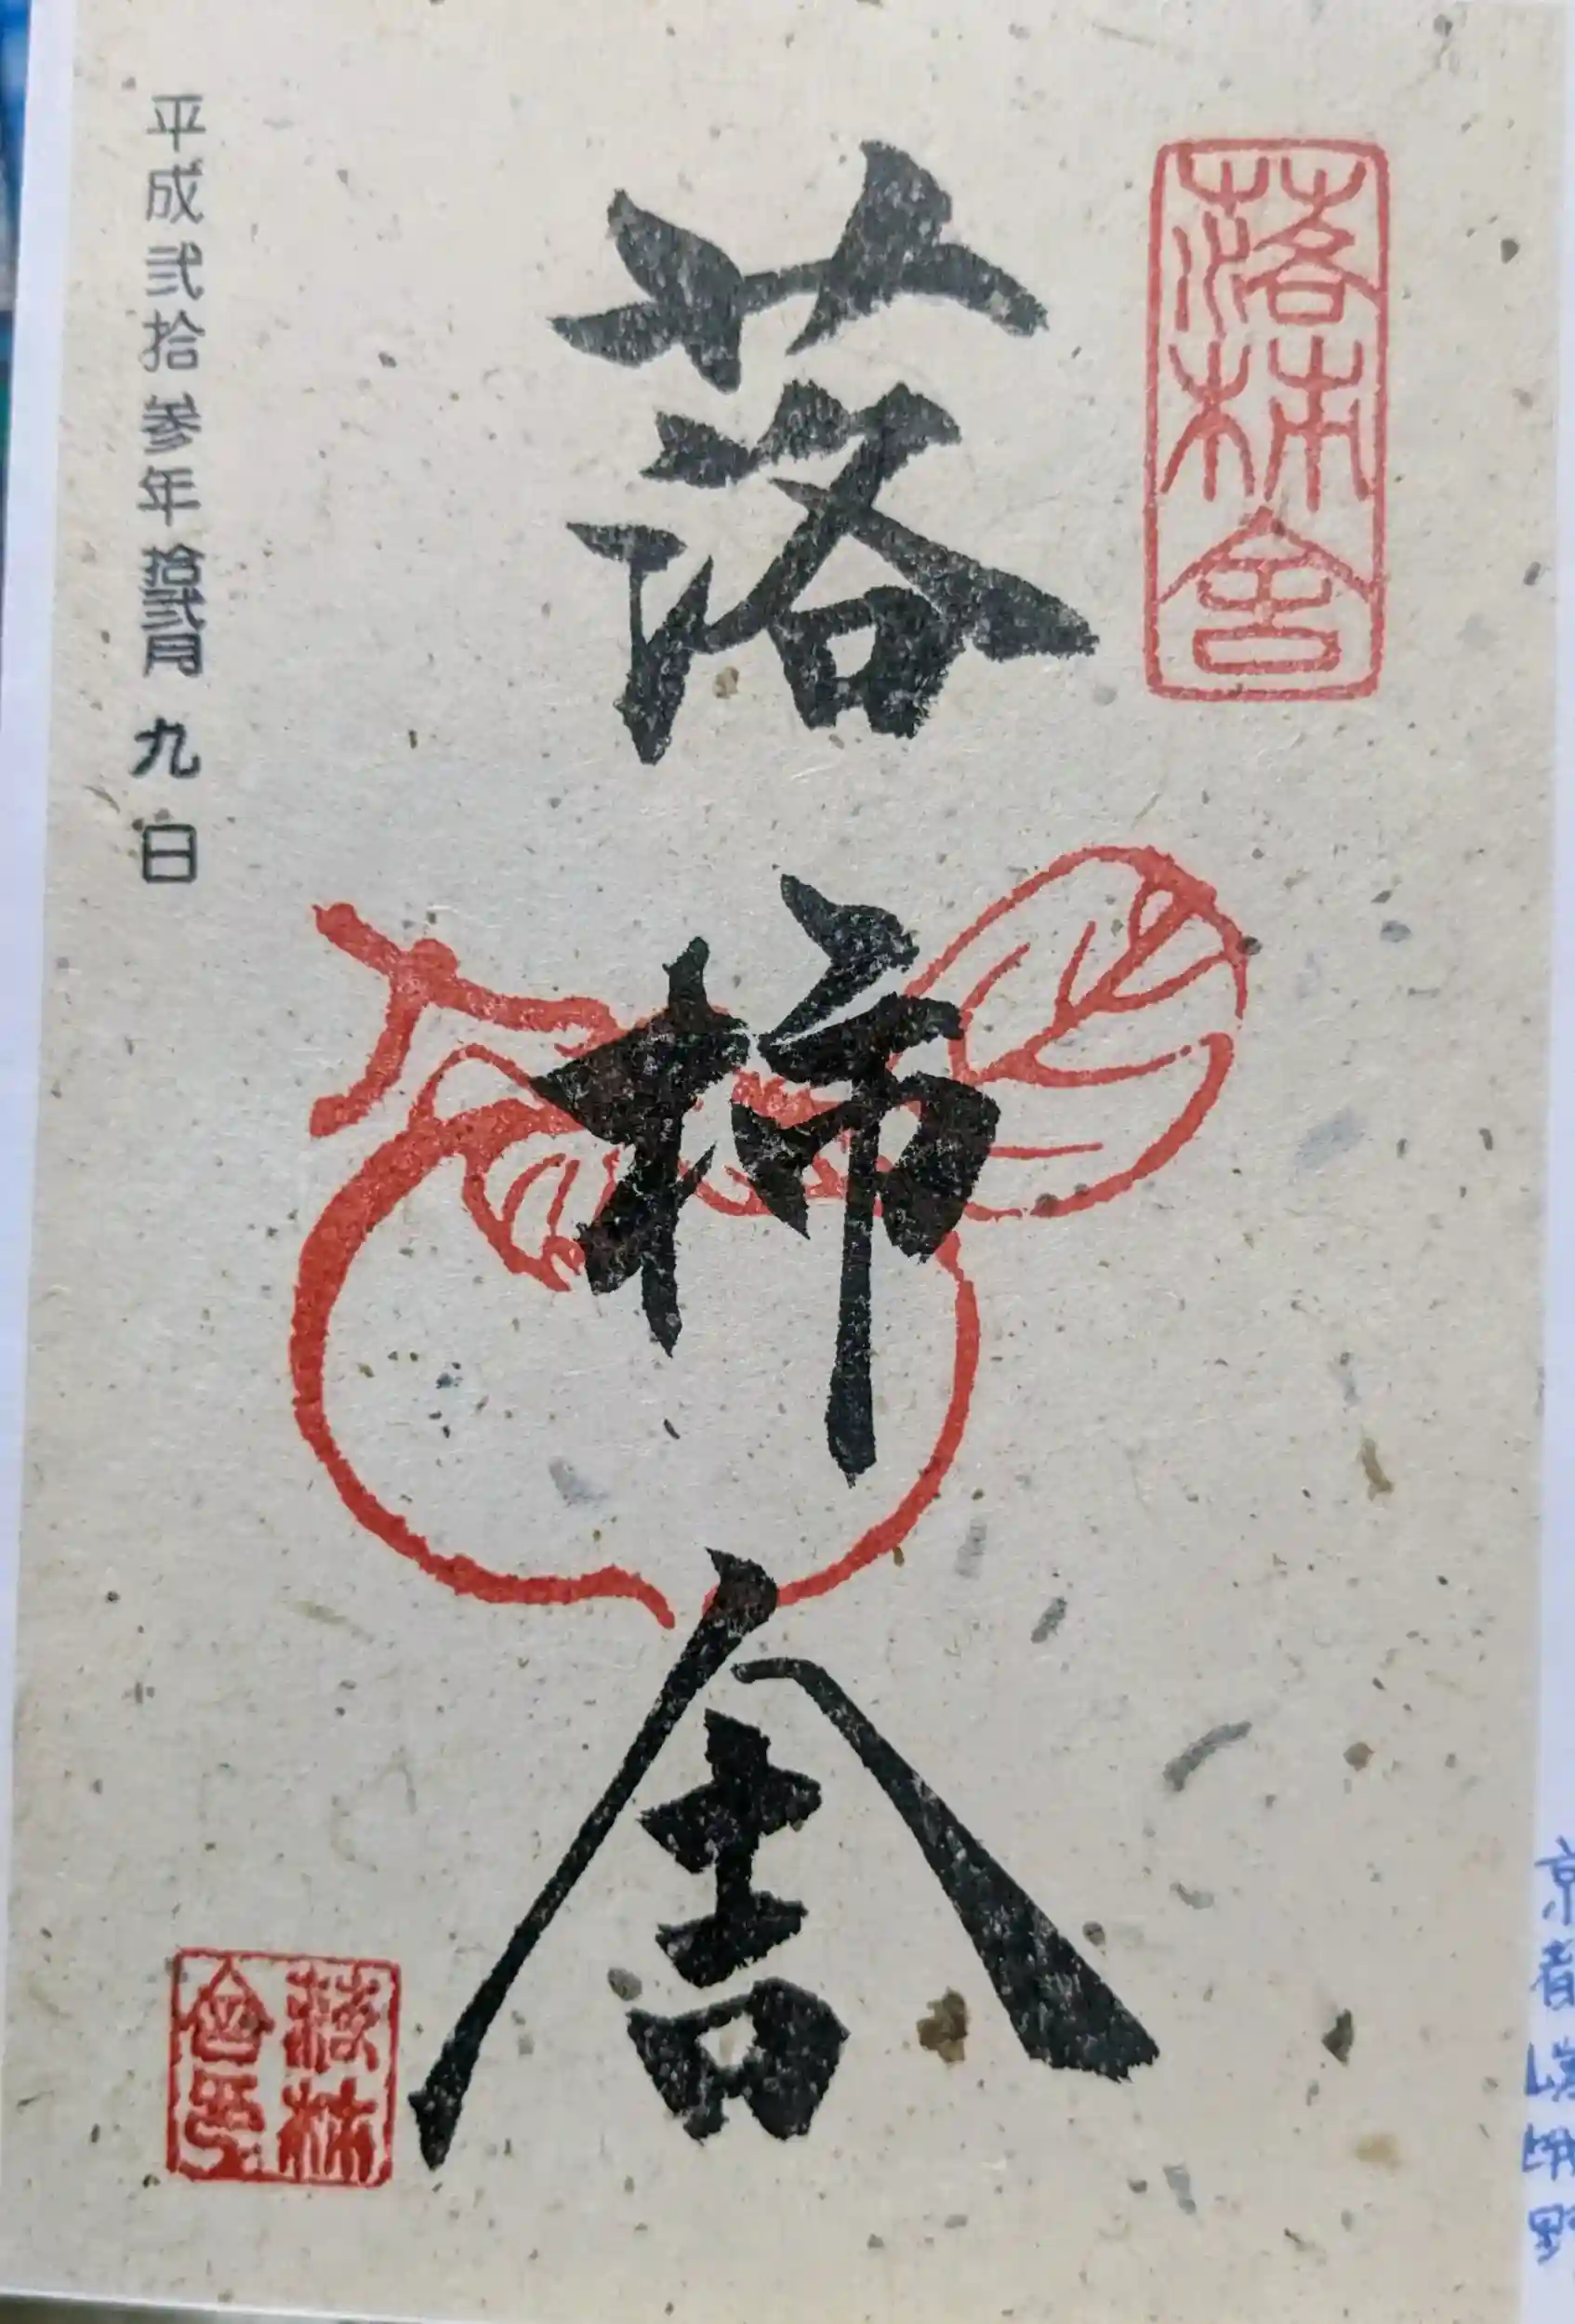 落柿舎
落柿舎
平成弐拾参年拾弐月九日
落柿舎印
京都嵯峨野